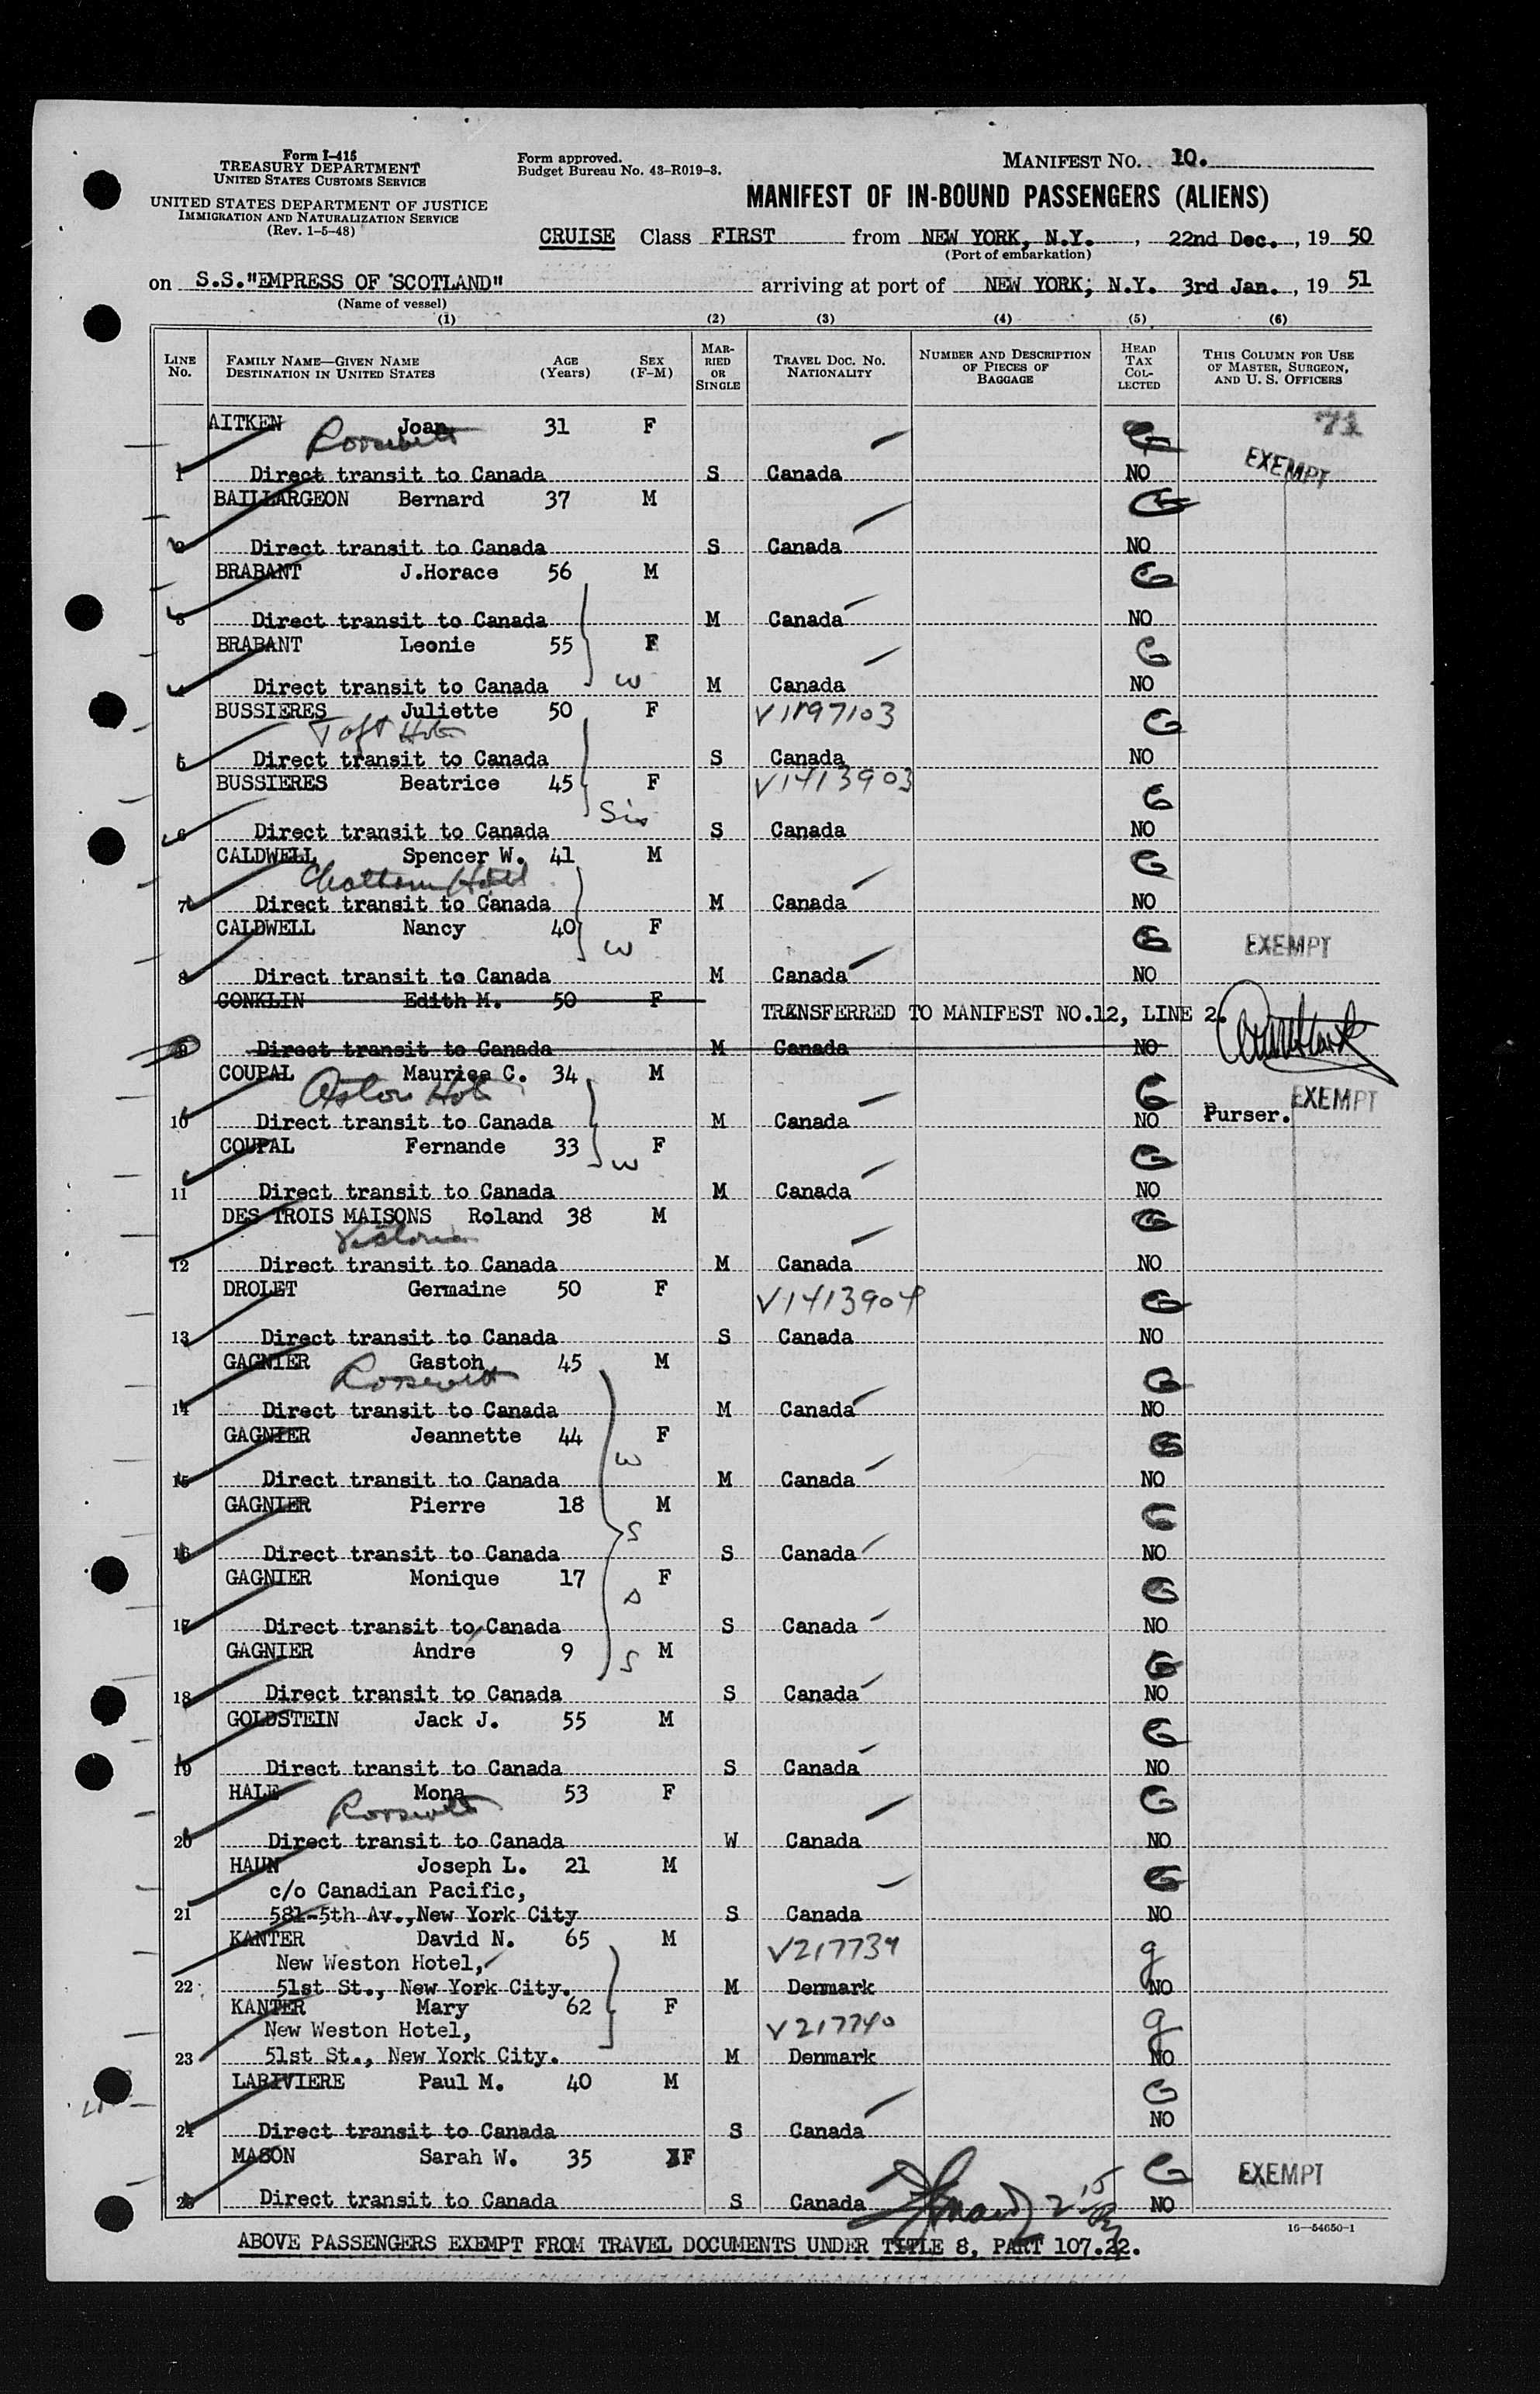 Form I-415
TREASURY DEPARTMENT
UNITED STATES CUSTOMS SERVICE
UNITED STATES DEPARTMENT OF JUSTICE
IMMIGRATION AND NATURALIZATION SERVICE
(Rev. 1-5-48)
Form approved.
Budget Bureau No. 43-R019-3.
MANIFEST NO. 10.
MANIFEST OF IN-BOUND PASSENGERS (ALIENS)
CRUISE Class FIRST from NEW YORK, N.Y., 22nd Dec., 19 50
(Port of embarkation)
on S.S."EMPRESS OF SCOTLAND" arriving at port of NEW YORK, N.Y. 3rd Jan., 19 51
(Name of vessel)
(1) (2) (3) (4) (5) (6)
LINE No. FAMILY NAME—GIVEN NAME DESTINATION IN UNITED STATES AGE (Years) SEX (F-M) MARRIED OR SINGLE TRAVEL DOC. NO. NATIONALITY NUMBER AND DESCRIPTION OF PIECES OF BAGGAGE HEAD TAX COLLECTED THIS COLUMN FOR USE OF MASTER, SURGEON, AND U. S. OFFICERS
AITKEN Joan 31 F
Roosevelt
1 Direct transit to Canada S Canada NO EXEMPT
BAILLARGEON Bernard 37 M G
2 Direct transit to Canada S Canada NO
BRABANT J.Horace 56 M G
3 Direct transit to Canada M Canada NO
BRABANT Leonie 55 F G
4 Direct transit to Canada W M Canada NO
BUSSIERES Juliette 50 F V1197103 G
Taft Hotel
5 Direct transit to Canada S Canada NO
BUSSIERES Beatrice 45 F V1413903 G
Sis
6 Direct transit to Canada S Canada NO
CALDWELL Spencer W. 41 M G
Chatham Hotel
7 Direct transit to Canada M Canada NO
CALDWELL Nancy 40 F G EXEMPT
W
8 Direct transit to Canada M Canada NO
CONKLIN Edith M. 50 F TRANSFERRED TO MANIFEST NO.12, LINE 2.
9 Direct transit to Canada M Canada NO
COUPAL Maurice C. 34 M G EXEMPT
Astor Hotel
10 Direct transit to Canada M Canada NO Purser.
COUPAL Fernande 33 W F G
11 Direct transit to Canada M Canada NO
DES TROIS MAISONS Roland 38 M G
Victoria
12 Direct transit to Canada M Canada NO
DROLET Germaine 50 F V1413904 G
13 Direct transit to Canada S Canada NO
GAGNIER Gaston 45 M G
Roosevelt
14 Direct transit to Canada M Canada NO
GAGNIER Jeannette 44 F G
W
15 Direct transit to Canada M Canada NO
GAGNIER Pierre 18 M G
S
16 Direct transit to Canada S Canada NO
GAGNIER Monique 17 F G
17 Direct transit to Canada S Canada NO
GAGNIER André 9 S M G
18 Direct transit to Canada S Canada NO
GOLDSTEIN Jack J. 55 M G
19 Direct transit to Canada S Canada NO
HALE Mona 53 F G
Roosevelt
20 Direct transit to Canada W Canada NO
HAUN Joseph L. 21 M G
c/o Canadian Pacific,
21 581-5th Av., New York City S Canada NO
KANTER David N. 65 M V217739 g
New Weston Hotel,
22 51st St., New York City. M Denmark NO
KANTER Mary 62 F V217740 g
New Weston Hotel,
23 51st St., New York City. M Denmark NO
LARIVIERE Paul M. 40 M G
24 Direct transit to Canada S Canada NO
MASON Sarah W. 35 F G EXEMPT
25 Direct transit to Canada S Canada NO
16—54650-1
ABOVE PASSENGERS EXEMPT FROM TRAVEL DOCUMENTS UNDER TITLE 8, PART 107.22.